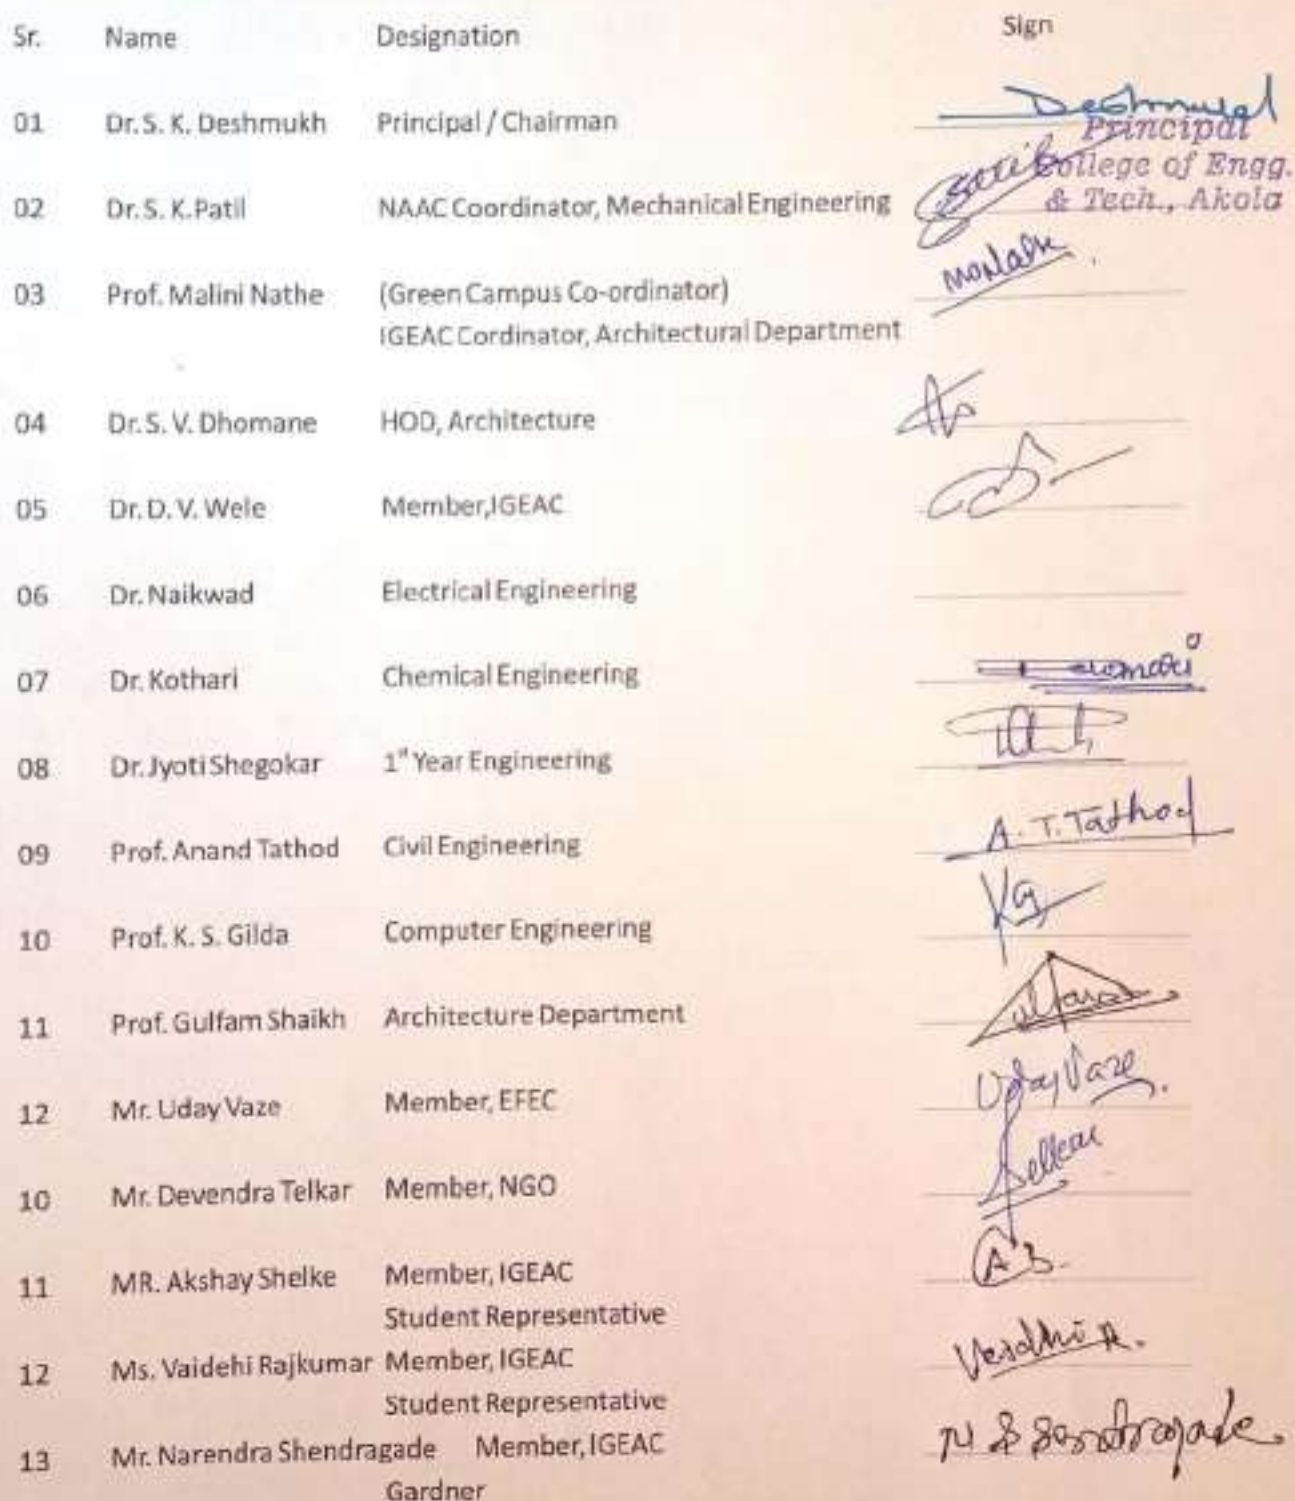 Sr. Name Designation Sign
01 Dr. S. K. Deshmukh Principal / Chairman Deshmukh
Principal
College of Engg.
& Tech., Akola
02 Dr. S. K. Patil NAAC Coordinator, Mechanical Engineering
03 Prof. Malini Nathe (Green Campus Co-ordinator)
IGEAC Cordinator, Architectural Department
04 Dr. S. V. Dhomane HOD, Architecture
05 Dr. D. V. Wele Member, IGEAC
06 Dr. Naikwad Electrical Engineering
07 Dr. Kothari Chemical Engineering
08 Dr. Jyoti Shegokar 1st Year Engineering
09 Prof. Anand Tathod Civil Engineering A. T. Tathod
10 Prof. K. S. Gilda Computer Engineering
11 Prof. Gulfam Shaikh Architecture Department
12 Mr. Uday Vaze Member, EFEC Uday Vaze
10 Mr. Devendra Telkar Member, NGO
11 MR. Akshay Shelke Member, IGEAC
Student Representative
12 Ms. Vaidehi Rajkumar Member, IGEAC
Student Representative
13 Mr. Narendra Shendragade Member, IGEAC
Gardner